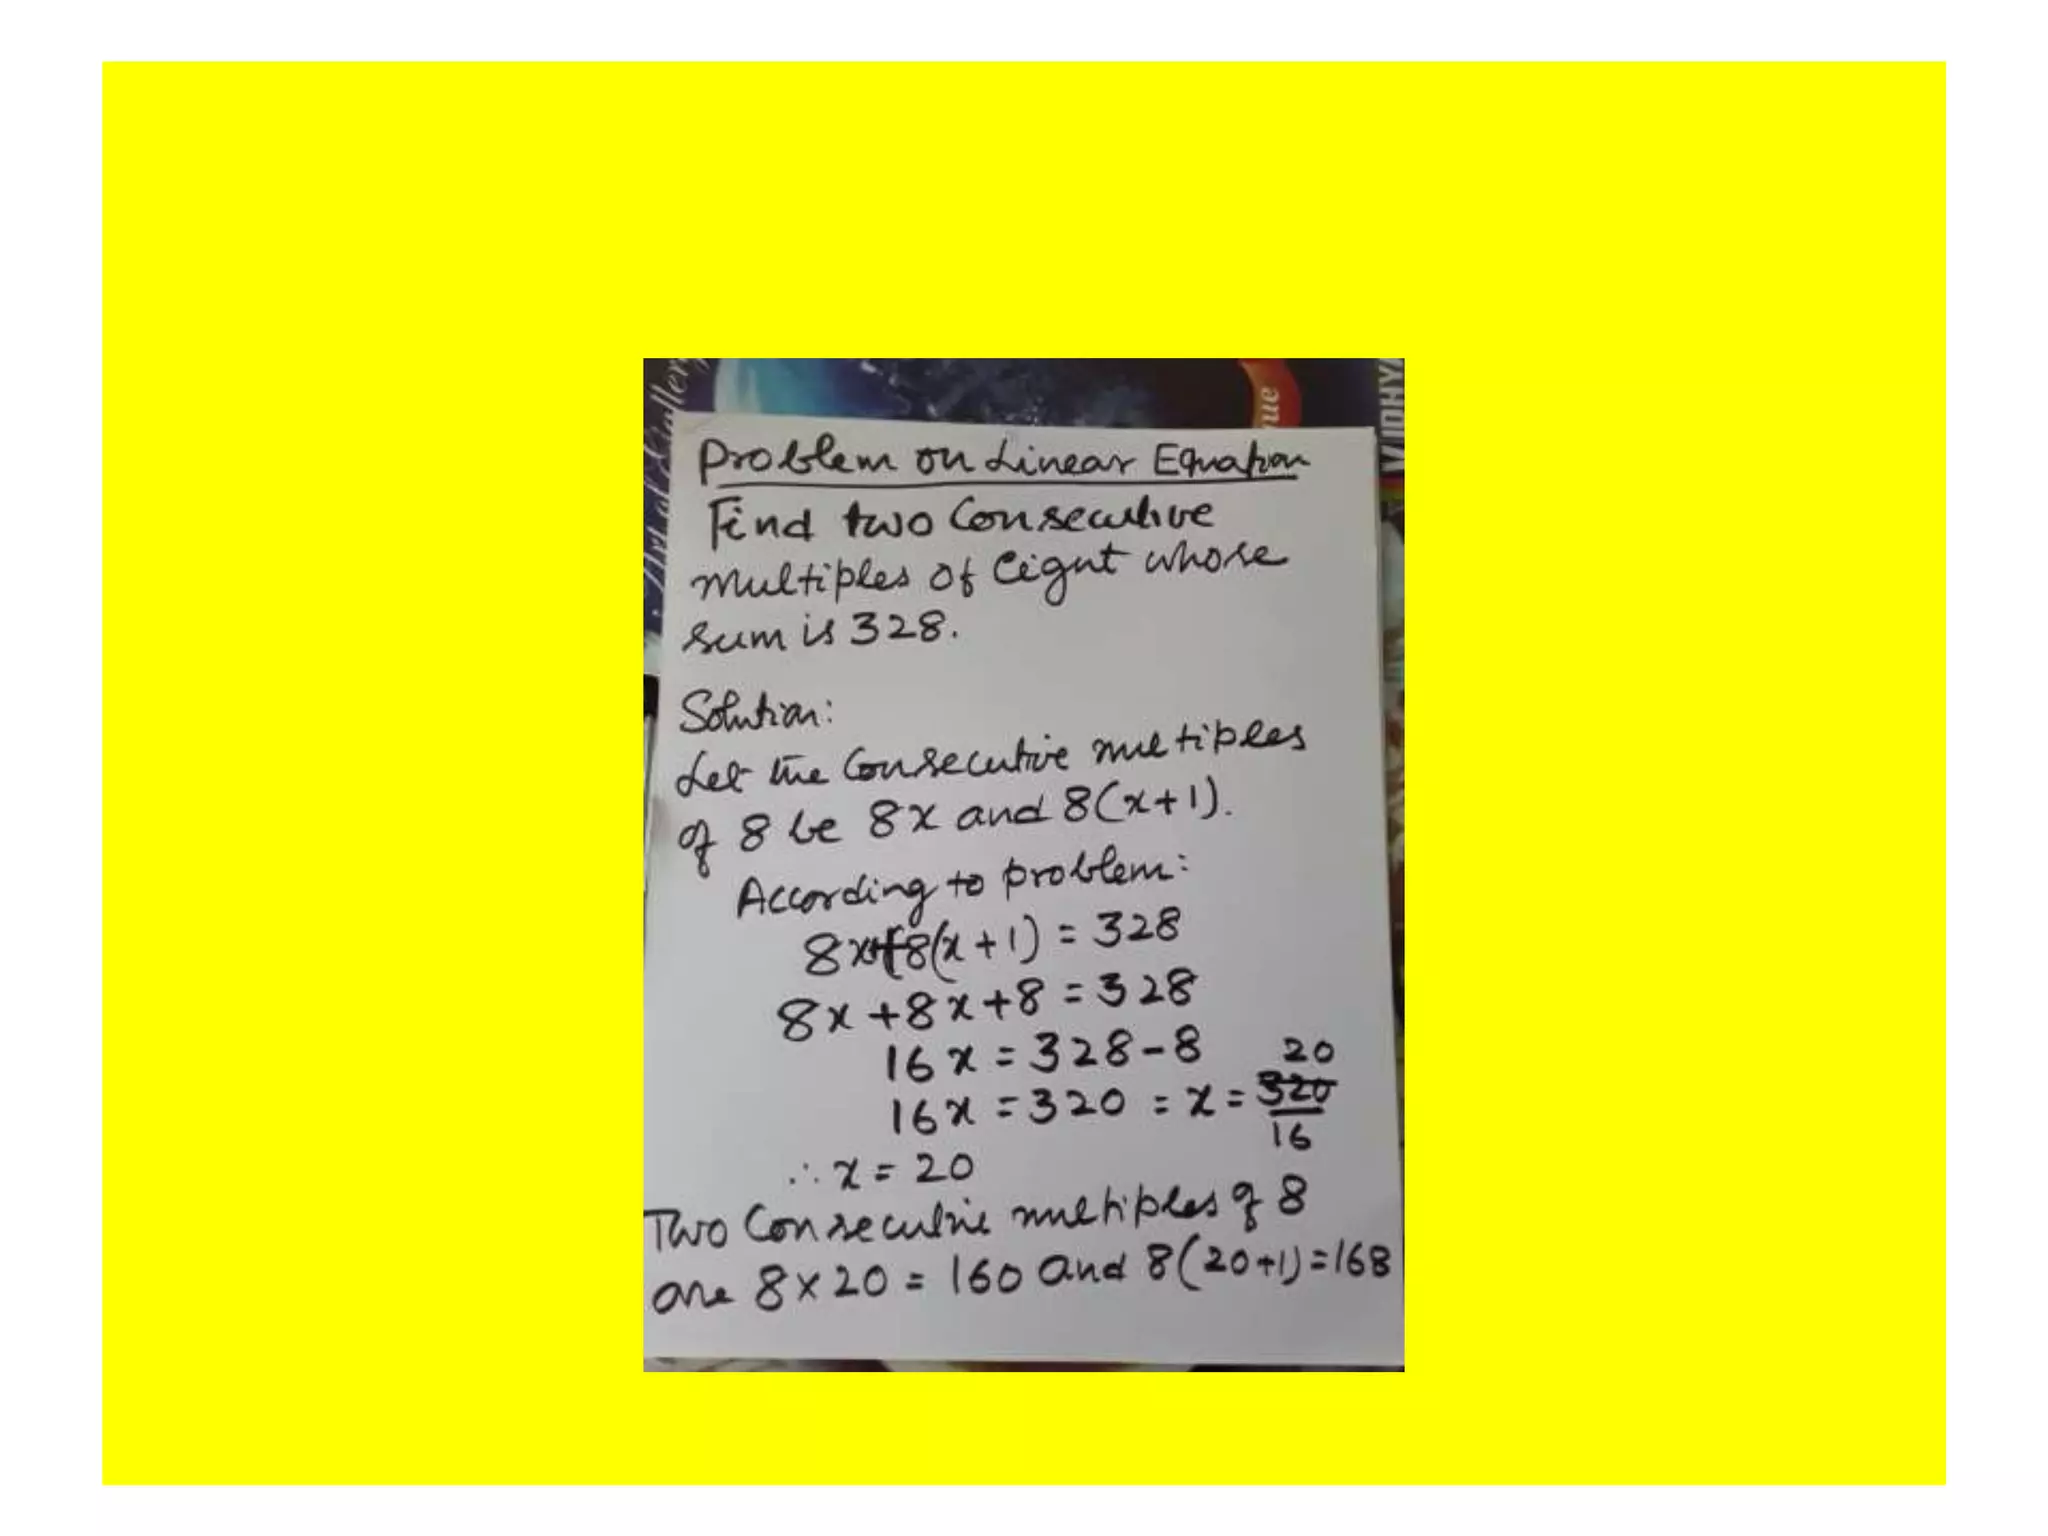 Art of Gallery
ue
VIDHYA
Problem on Linear Equation
Find two Consecutive
multiples of Eight whose
sum is 328.
Solution:
Let the Consecutive multiples
of 8 be 8x and 8(x+1).
According to problem:
8x+8(x+1) = 328
8x+8x+8 = 328
16x = 328-8
16x = 320 = x = 320/16 20
∴ x = 20
Two Consecutive multiples of 8
are 8x20 = 160 and 8(20+1)=168